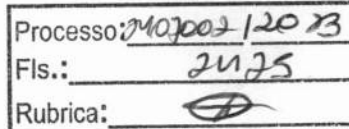 Processo: 2407002 / 2023
Fls.: 2425
Rubrica: